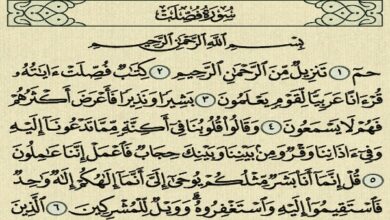 سُورَةُ فُصِّلَتْ
بِسْمِ ٱللَّهِ ٱلرَّحْمَٰنِ ٱلرَّحِيمِ
حمٓ ۝١ تَنزِيلٌ مِّنَ ٱلرَّحْمَٰنِ ٱلرَّحِيمِ ۝٢ كِتَٰبٌ فُصِّلَتْ ءَايَٰتُهُۥ
قُرْءَانًا عَرَبِيًّا لِّقَوْمٍ يَعْلَمُونَ ۝٣ بَشِيرًا وَنَذِيرًا فَأَعْرَضَ أَكْثَرُهُمْ
فَهُمْ لَا يَسْمَعُونَ ۝٤ وَقَالُوا۟ قُلُوبُنَا فِىٓ أَكِنَّةٍ مِّمَّا تَدْعُونَآ إِلَيْهِ
وَفِىٓ ءَاذَانِنَا وَقْرٌ وَمِنۢ بَيْنِنَا وَبَيْنِكَ حِجَابٌ فَٱعْمَلْ إِنَّنَا عَٰمِلُونَ
۝٥ قُلْ إِنَّمَآ أَنَا۠ بَشَرٌ مِّثْلُكُمْ يُوحَىٰٓ إِلَىَّ أَنَّمَآ إِلَٰهُكُمْ إِلَٰهٌ وَٰحِدٌ
فَٱسْتَقِيمُوٓا۟ إِلَيْهِ وَٱسْتَغْفِرُوهُ ۗ وَوَيْلٌ لِّلْمُشْرِكِينَ ۝٦ ٱلَّذِينَ